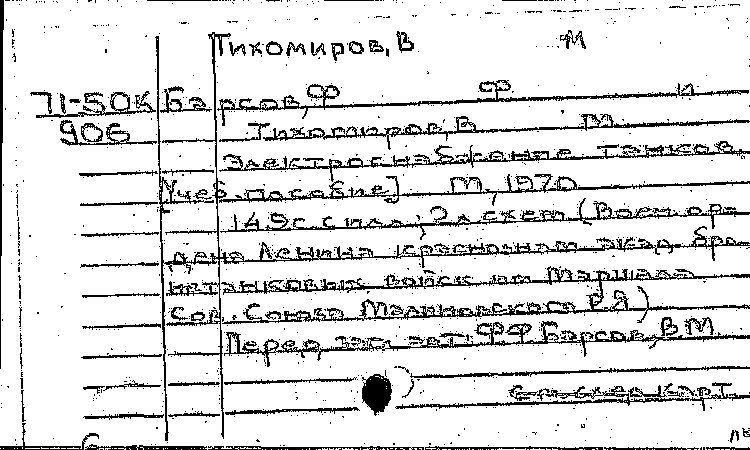 Тихомиров, В М
71-50К Барсов, Ф Ф и
906 Тихомиров, В М
Электроснабжение танков.
[Учеб. пособие] М, 1970
149с с илл; 2л схем (Воен ор-
дена Ленина краснознам акад бро-
нетанковых войск им Маршала
Сов. Союза Малиновского Р Я)
Перед загл авт: Ф Ф Барсов, В М
См след карт